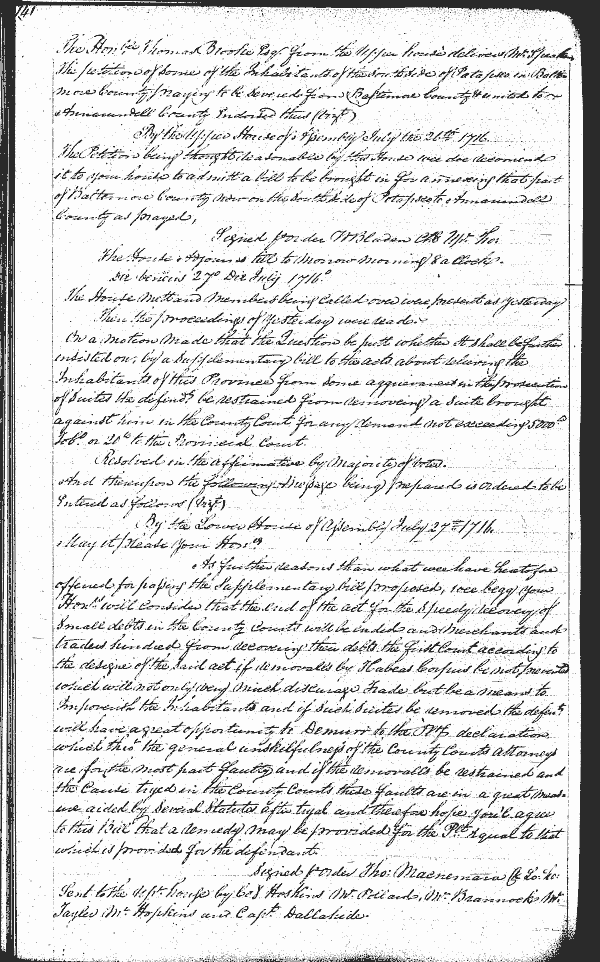 141
The Honble Thomas Brooke Esqr. from the upper house delivers Mr. Speaker
The petition of some of the Inhabitants of the South side of Potapsco in Balti
more County praying to be severed from Baltimore County & united to
Annarundell County Endorsed thus (vizt)
By the Upper House of Assembly July the 26th 1716
The Petition being thought reasonable by this House wee doe recomend
it to your house to admitt a bill to be brought in for annexing that part
of Baltemore County now on the South side of Potapsco to Annarundell
County as prayed,
Signed p order W Bladen Cl Upr. Ho:
The House Adjourns till to Morrow morning 8 a Clock.
Die Veneris 27o Die July 1716o
The House mett and members being Called over were present as yesterday
Then the proceedings of yesterday were read.
On a motion Made that the Question be putt whether it shall be further
insisted on, by a Supplementary bill to the acts about releiving the
Inhabitants of this Province from some aggreivances in the prosecution
of Suites the defendt be restrained from removeing a Suite brought
against him in the County Court for any demand not exceeding 5000d
Tobo. or 20£ to the Provincial Court
Resolved in the affirmative by Majority of votes.
And thereupon the following Message being prepared is ordered to be
Entered as follows (vizt)
By the Lower House of Assembly July 27th 1716
May it please Your Honrs
As further reasons than what wee have heretofore
offered for passing the Supplementary bill proposed, wee begg you
Honrs will Consider that the end of the act for the Speedy recovery of
Small debts in the County Courts will be ended and Merchants and
traders hindred from recovering their debts the first Court according to
the designe of the said act if removealls by Habeas Corpus be not prevented
which will not only very much discurage trade but be a means to
Impoverish the Inhabitants and if such Suites be removed the defendt
will have a great opportunity to Demurr to the Pltfs declaration
which thro' the general unskilfulness of the County Courts Attorneys
are for the most part faulty and if the removealls be restrained and
the Cause tryed in the County Courts these faults are in a great meas
ure aided by Several Statutes after tryal and therefore hope you'l agree
to this Bill that a remedy may be provided for the Plt. equal to that
which is provided for the defendant.
Signed p order Tho: Macnemara Cl Lo: ho:
Sent to the uppr. house by Col Hoskins Mr. Pollard, Mr. Brannock Mr.
Tayler Mr. Hopkins and Capt. Dallahide.